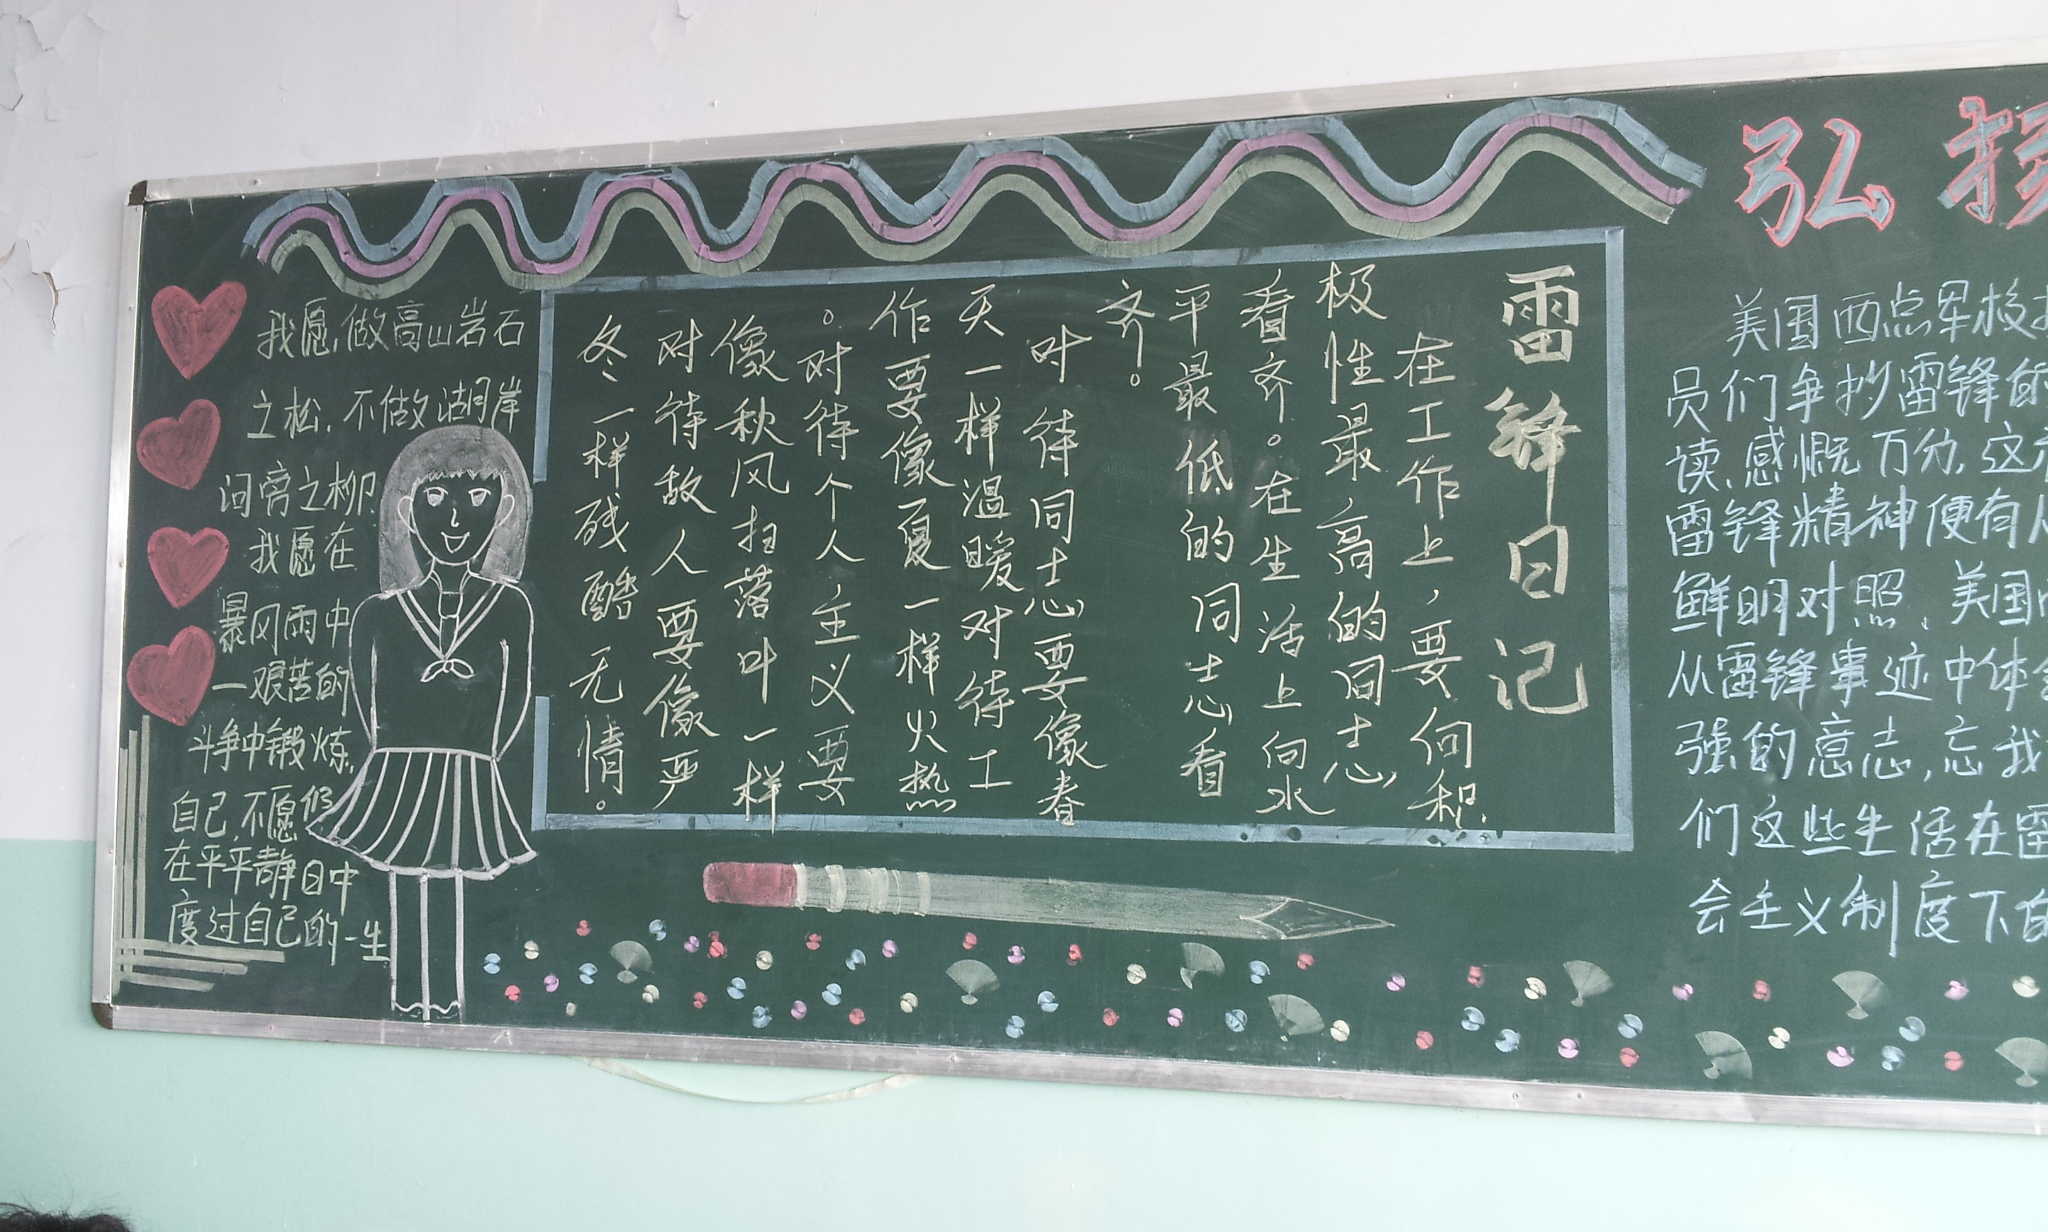 我愿做高山岩石
之松,不做湖岸
河旁之柳,
我愿在
暴风雨中
一艰苦的
斗争中锻炼,
自己,不愿
在平平静日中
度过自己的一生
雷锋日记
在工作上,要向积
极性最高的同志
看齐。在生活上向水
平最低的同志看
齐。
对待同志要像春
天一样温暖对待工
作要像夏一样火热
。对待个人主义要
像秋风扫落叶一样
对待敌人要像严
冬一样残酷无情。
弘扬
美国西点军校
员们争抄雷锋的
读,感慨万分,这
雷锋精神便有
鲜明对照,美国
从雷锋事迹中体
强的意志,忘我
们这些生活在雷
会主义制度下的